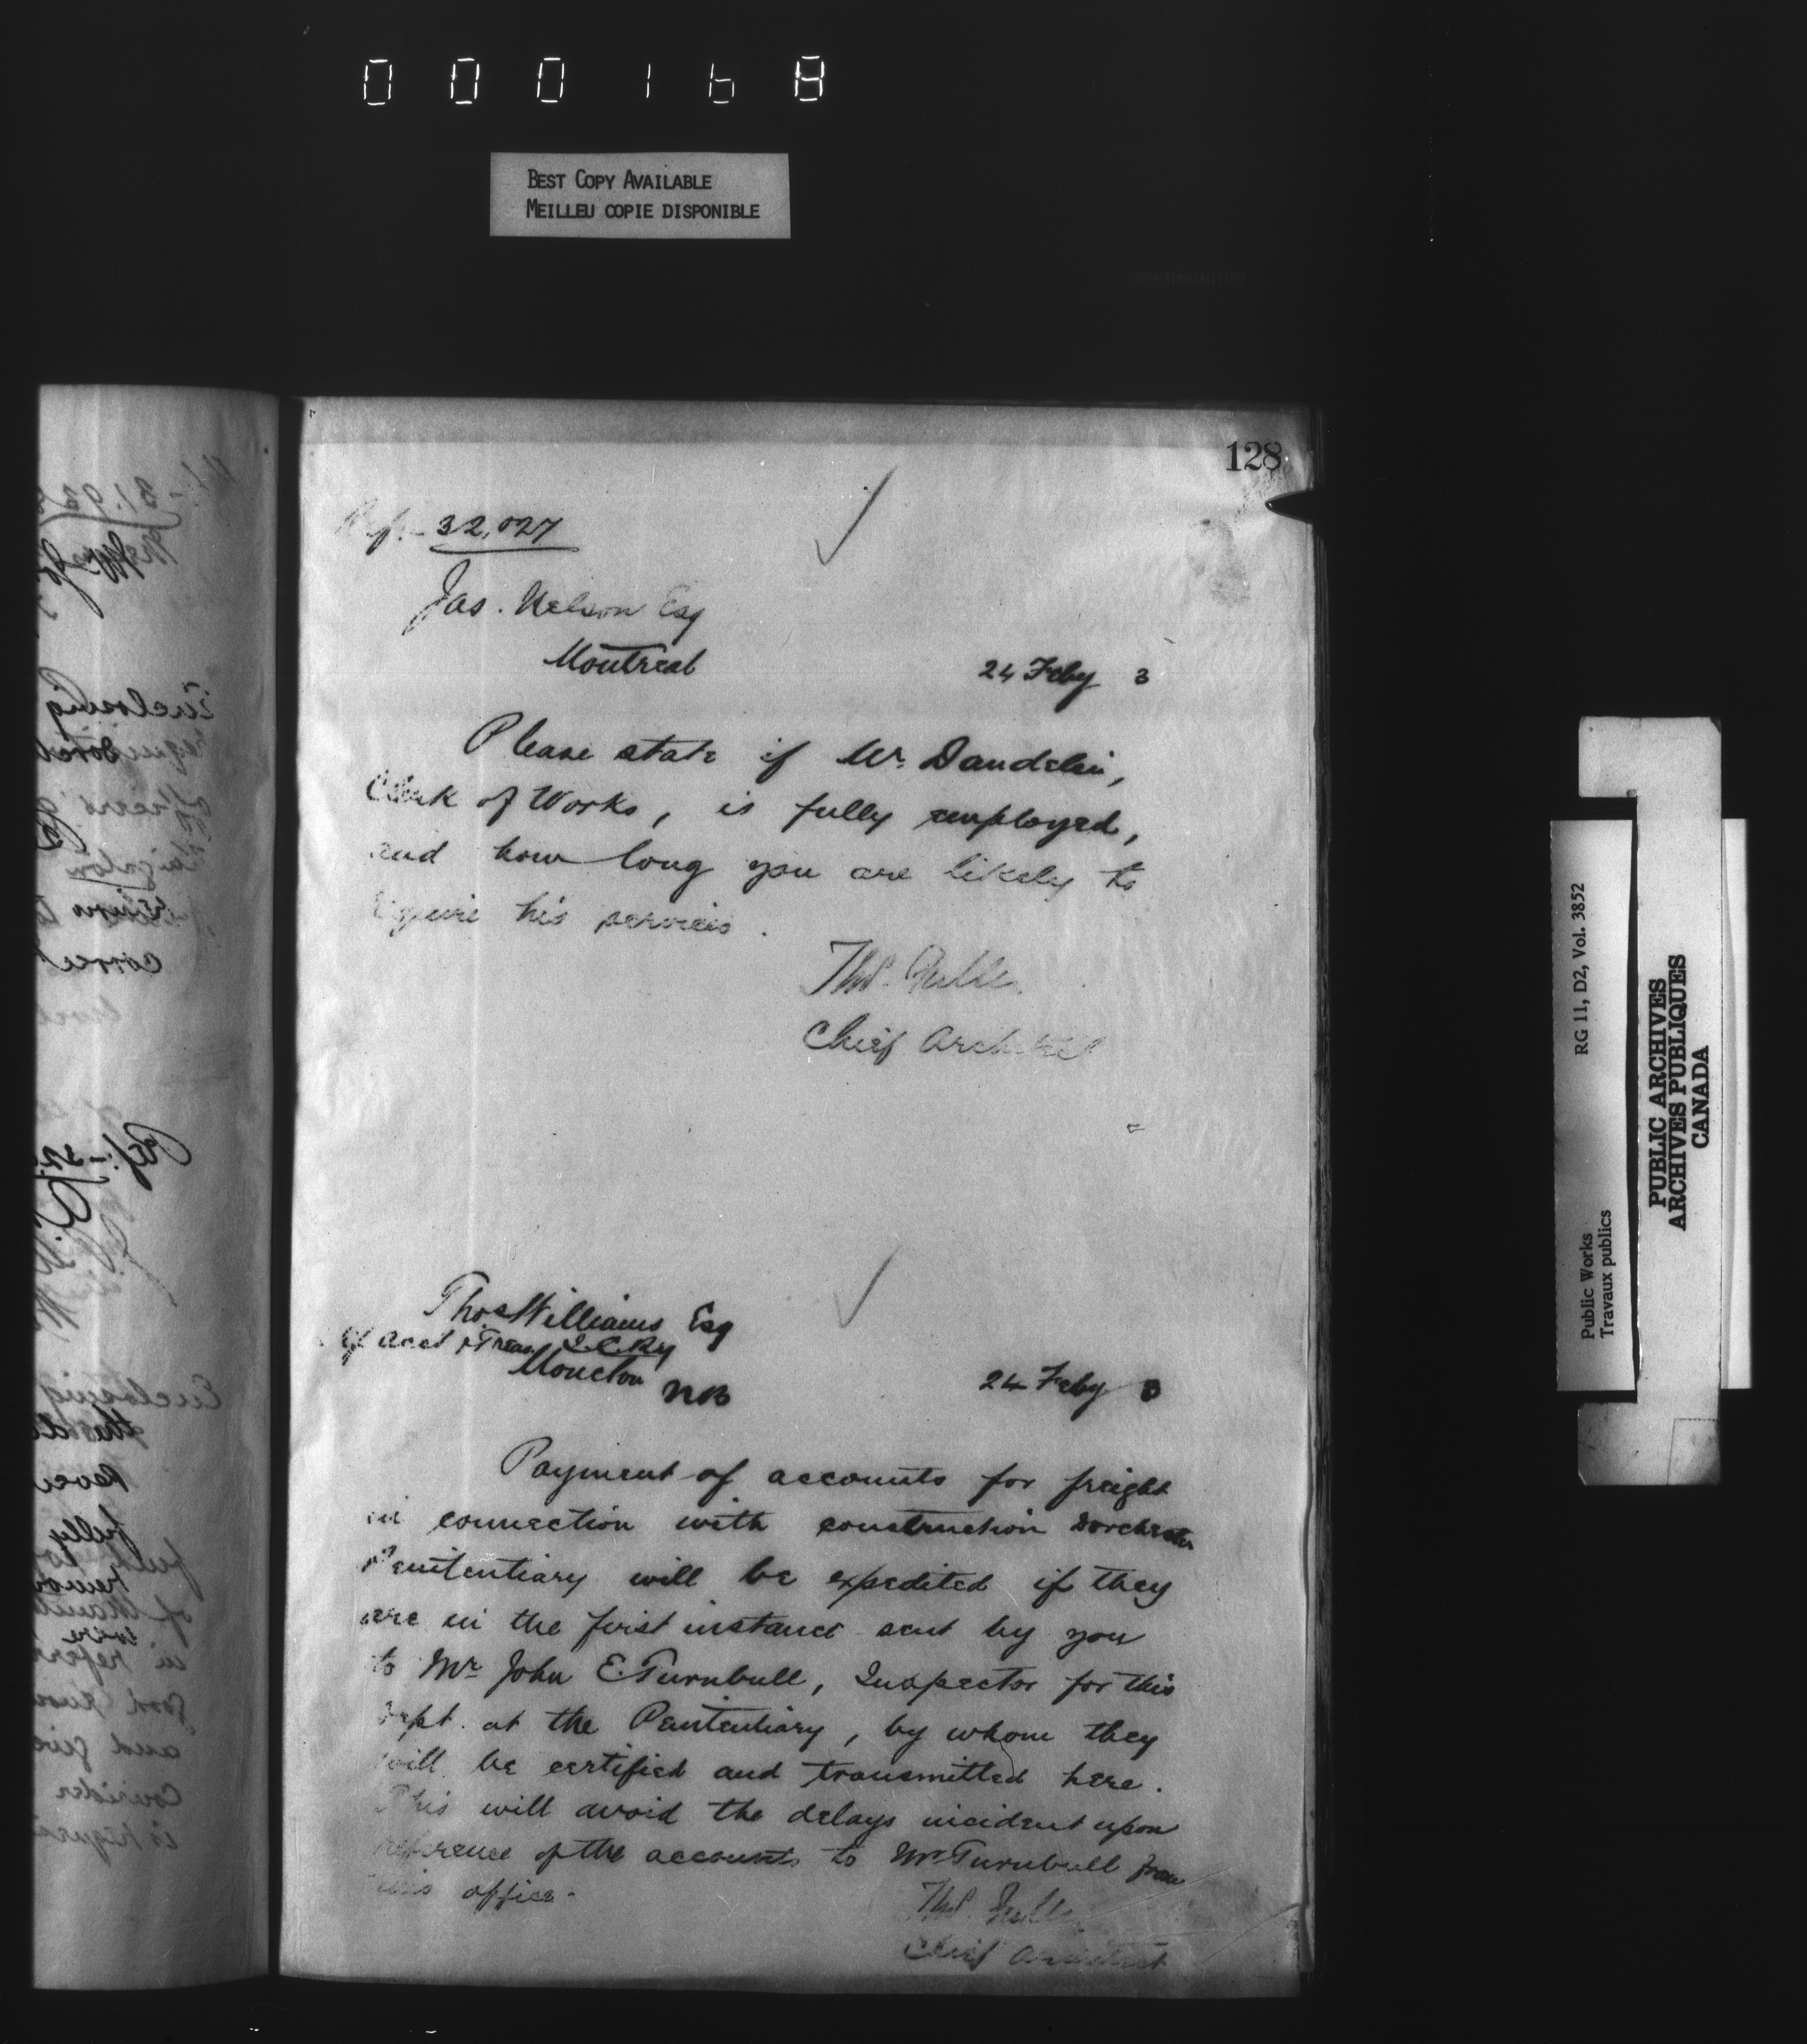 000168
BEST COPY AVAILABLE
MEILLEU COPIE DISPONIBLE
128
Ref:- 32,027
Jas. Nelson Esq
Montreal
24 Feby 3
Please state if Mr. Dandelin,
Clerk of Works, is fully employed,
and how long you are likely to
require his services.
Thos.
Chief Architect
Thos Williams Esq
Acct & Treas I.C.Ry
Moncton NB
24 Feby 3
Payment of accounts for freight
in connection with construction Dorchester
Penitentiary will be expedited if they
are in the first instance sent by you
to Mr John E. Turnbull, Inspector for this
Dept. at the Penitentiary, by whom they
will be certified and transmitted here.
This will avoid the delays incident upon
reference of the accounts to Mr Turnbull from
this office.
Thos.
Chief Architect
Public Works
Travaux publics
RG 11, D2, Vol. 3852
PUBLIC ARCHIVES
ARCHIVES PUBLIQUES
CANADA